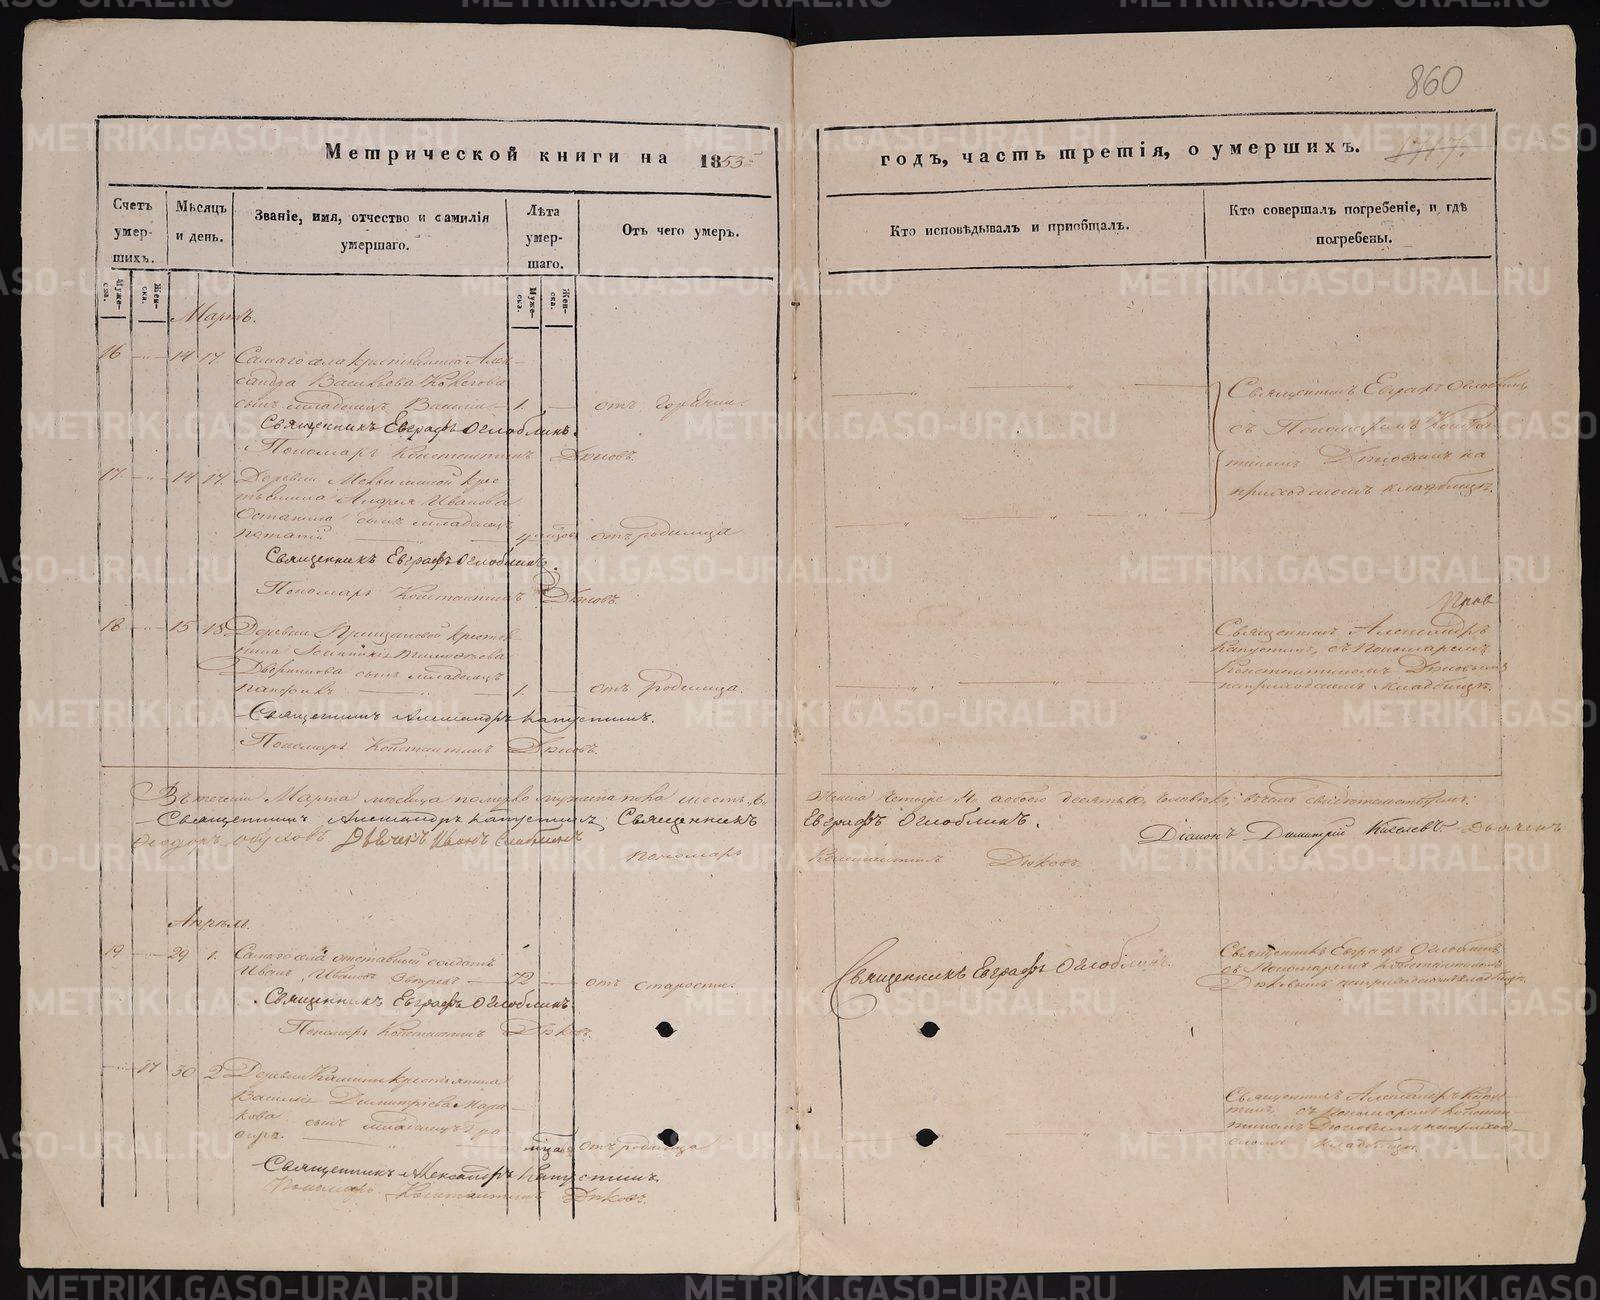 860
Метрической книги на 1853
годъ, часть третія, о умершихъ.
Счетъ умер-шихъ.
Мѣсяцъ и день.
Званіе, имя, отчество и фамилія умершаго.
Лѣта умер-шаго.
Отъ чего умеръ.
Кто исповѣдывалъ и приобщалъ.
Кто совершалъ погребеніе, и гдѣ погребены.
Муже-ска.
Жен-ска.
Муже-ска.
Жен-ска.
Мартъ.
16 14 17 Самаго села крестьянина Алек-
сандра Васильева
сынъ младенецъ Василій 1. отъ горячки.
Священникъ Евграфъ Оглоблинъ.
Пономарь Константинъ Дюковъ.
Священникъ Евграфъ Оглоблинъ
съ Пономаремъ Констан-
тиномъ Дюковымъ на
приходскомъ кладбищѣ.
17. 14 17. Деревни крес-
тьянина Андрея Иванова
Останина сынъ младенецъ
отъ родимца
Священникъ Евграфъ Оглоблинъ.
Пономарь Константинъ Дюковъ.
18 15 18 Деревни крестья-
нина
Дворникова сынъ младенецъ
1. отъ родимца.
Священникъ Александръ Капустинъ.
Пономарь Константинъ Дюковъ.
Священникъ Александръ
Капустинъ, съ Пономаремъ
Константиномъ Дюковымъ
на приходскомъ кладбищѣ.
Въ теченіи Марта мѣсяца померло мужеска пола шесть „6„
женска четыре 4, обоего десять 10, человѣкъ; въ чемъ свидѣтельствуемъ:
Священникъ Александръ Капустинъ, Священникъ
Евграфъ Оглоблинъ. Діаконъ Димитрій Киселевъ. Дьячекъ
Феодоръ Обуховъ Дьячекъ Иванъ
Пономарь Константинъ Дюковъ.
Апрѣль.
19 29 1. Самаго села отставный солдатъ
Иванъ Ивановъ 72 отъ старости.
Священникъ Евграфъ Оглоблинъ.
Пономарь Константинъ Дюковъ.
Священникъ Евграфъ Оглоблинъ.
Священникъ Евграфъ Оглоблинъ
съ Пономаремъ Константиномъ
Дюковымъ на приходскомъ кладбищѣ.
17 30 2 Деревни крестьянина
Василія Димитріева
сынъ младенецъ
отъ родимца
Священникъ Александръ Капустинъ.
Пономарь Константинъ Дюковъ.
Священникъ Александръ Капус-
тинъ съ Пономаремъ Констан-
тиномъ Дюковымъ на приход-
скомъ кладбищѣ.
METRIKI.GASO-URAL.RU